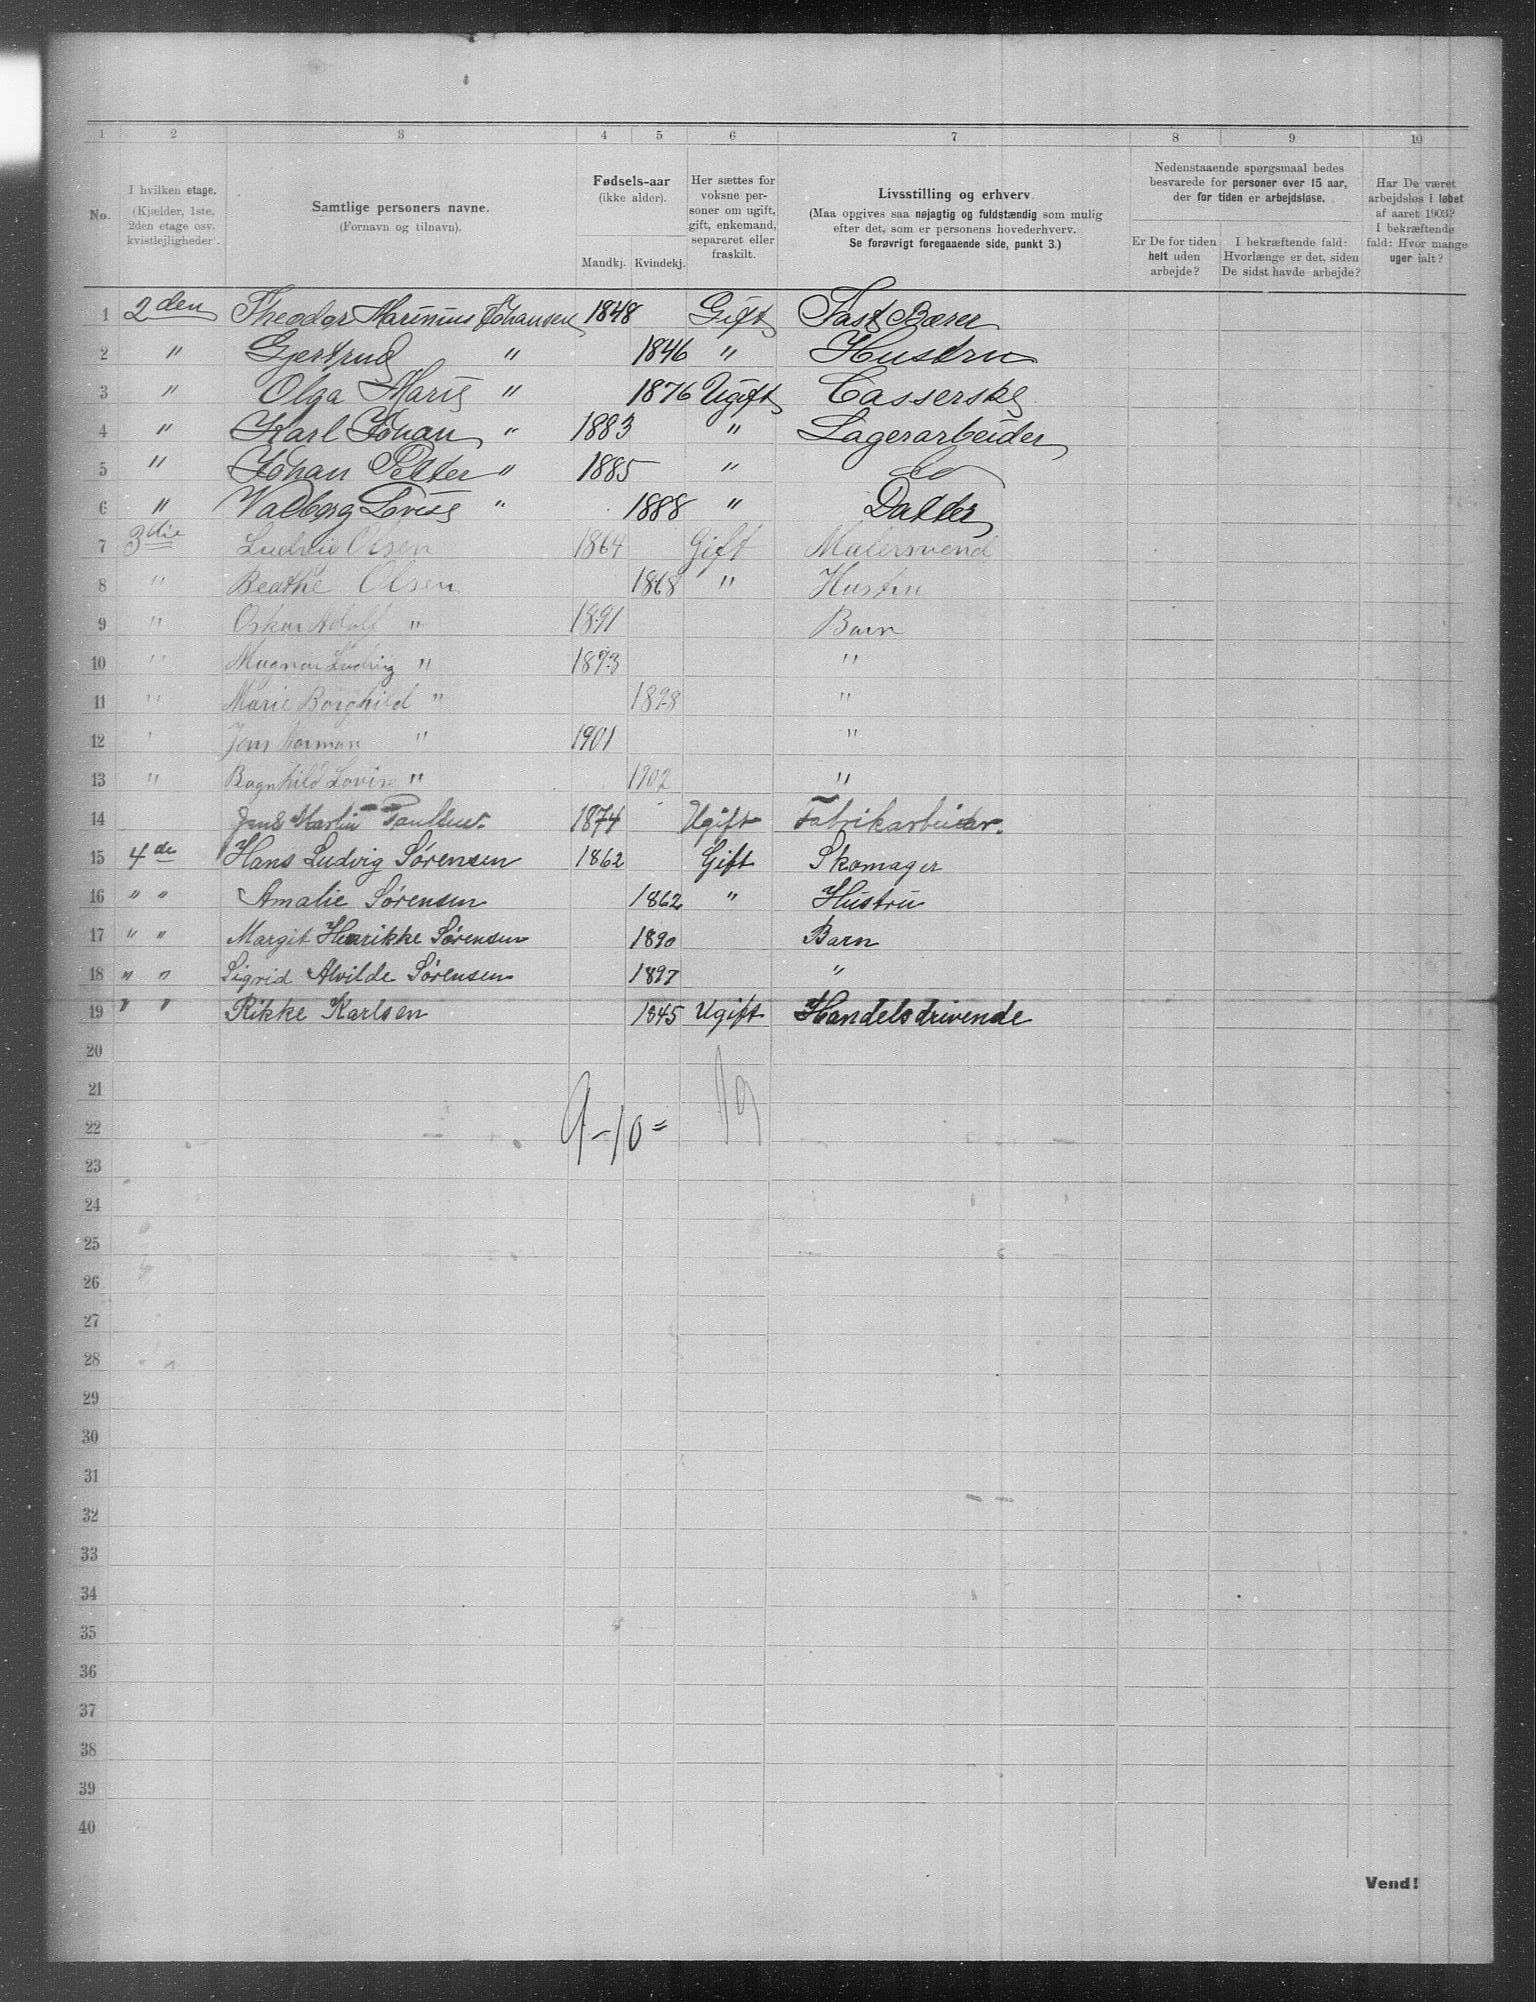 1 2 3 4 5 6 7 8 9 10
No.
I hvilken etage.
(Kjælder, 1ste,
2den etage osv.
kvistlejligheder).
Samtlige personers navne.
(Fornavn og tilnavn).
Fødsels-aar
(ikke alder).
Mandkj. Kvindekj.
Her sættes for
voksne per-
soner om ugift,
gift, enkemand,
separeret eller
fraskilt.
Livsstilling og erhverv.
(Maa opgives saa nøjagtig og fuldstændig som mulig
efter det, som er personens hovederhverv.
Se forøvrigt foregaaende side, punkt 3.)
Nedenstaaende spørgsmaal bedes
besvarede for personer over 15 aar,
der for tiden er arbejdsløse.
Er De for tiden
helt uden
arbejde?
I bekræftende fald:
Hvorlænge er det, siden
De sidst havde arbejde?
Har De været
arbejdsløs i løbet
af aaret 1903?
I bekræftende
fald: Hvor mange
uger ialt?
1 2den Theodor Marinius Johansen 1848 Gift Fast Bærer
2 " Gjertrud " 1846 " Hustru
3 " Olga Marie " 1876 Ugift Casserske
4 " Karl Johan " 1883 " Lagerarbeider
5 " Johan Petter " 1885 " do
6 " Valborg Lovise " 1888 " Datter
7 3die Ludvig Olsen 1864 Gift Malersvend
8 " Beathe Olsen 1868 " Hustru
9 " Oskar Adolf " 1891 Barn
10 " Magnar Ludvig " 1893 "
11 " Marie Borghild " 1898 "
12 " Jens Norman " 1901 "
13 " Ragnhild Lovise " 1902 "
14 Jens Martin Paulsen 1874 Ugift Fabrikarbeider.
15 4de Hans Ludvig Sørensen 1862 Gift Skomager
16 " " Amalie Sørensen 1862 " Hustru
17 " " Margit Henrikke Sørensen 1890 Barn
18 " " Sigrid Alvilde Sørensen 1897 "
19 " " Rikke Karlsen 1845 Ugift Handelsdrivende
20
21
22 9-10= 19
23
24
25
26
27
28
29
30
31
32
33
34
35
36
37
38
39
40
Vend!